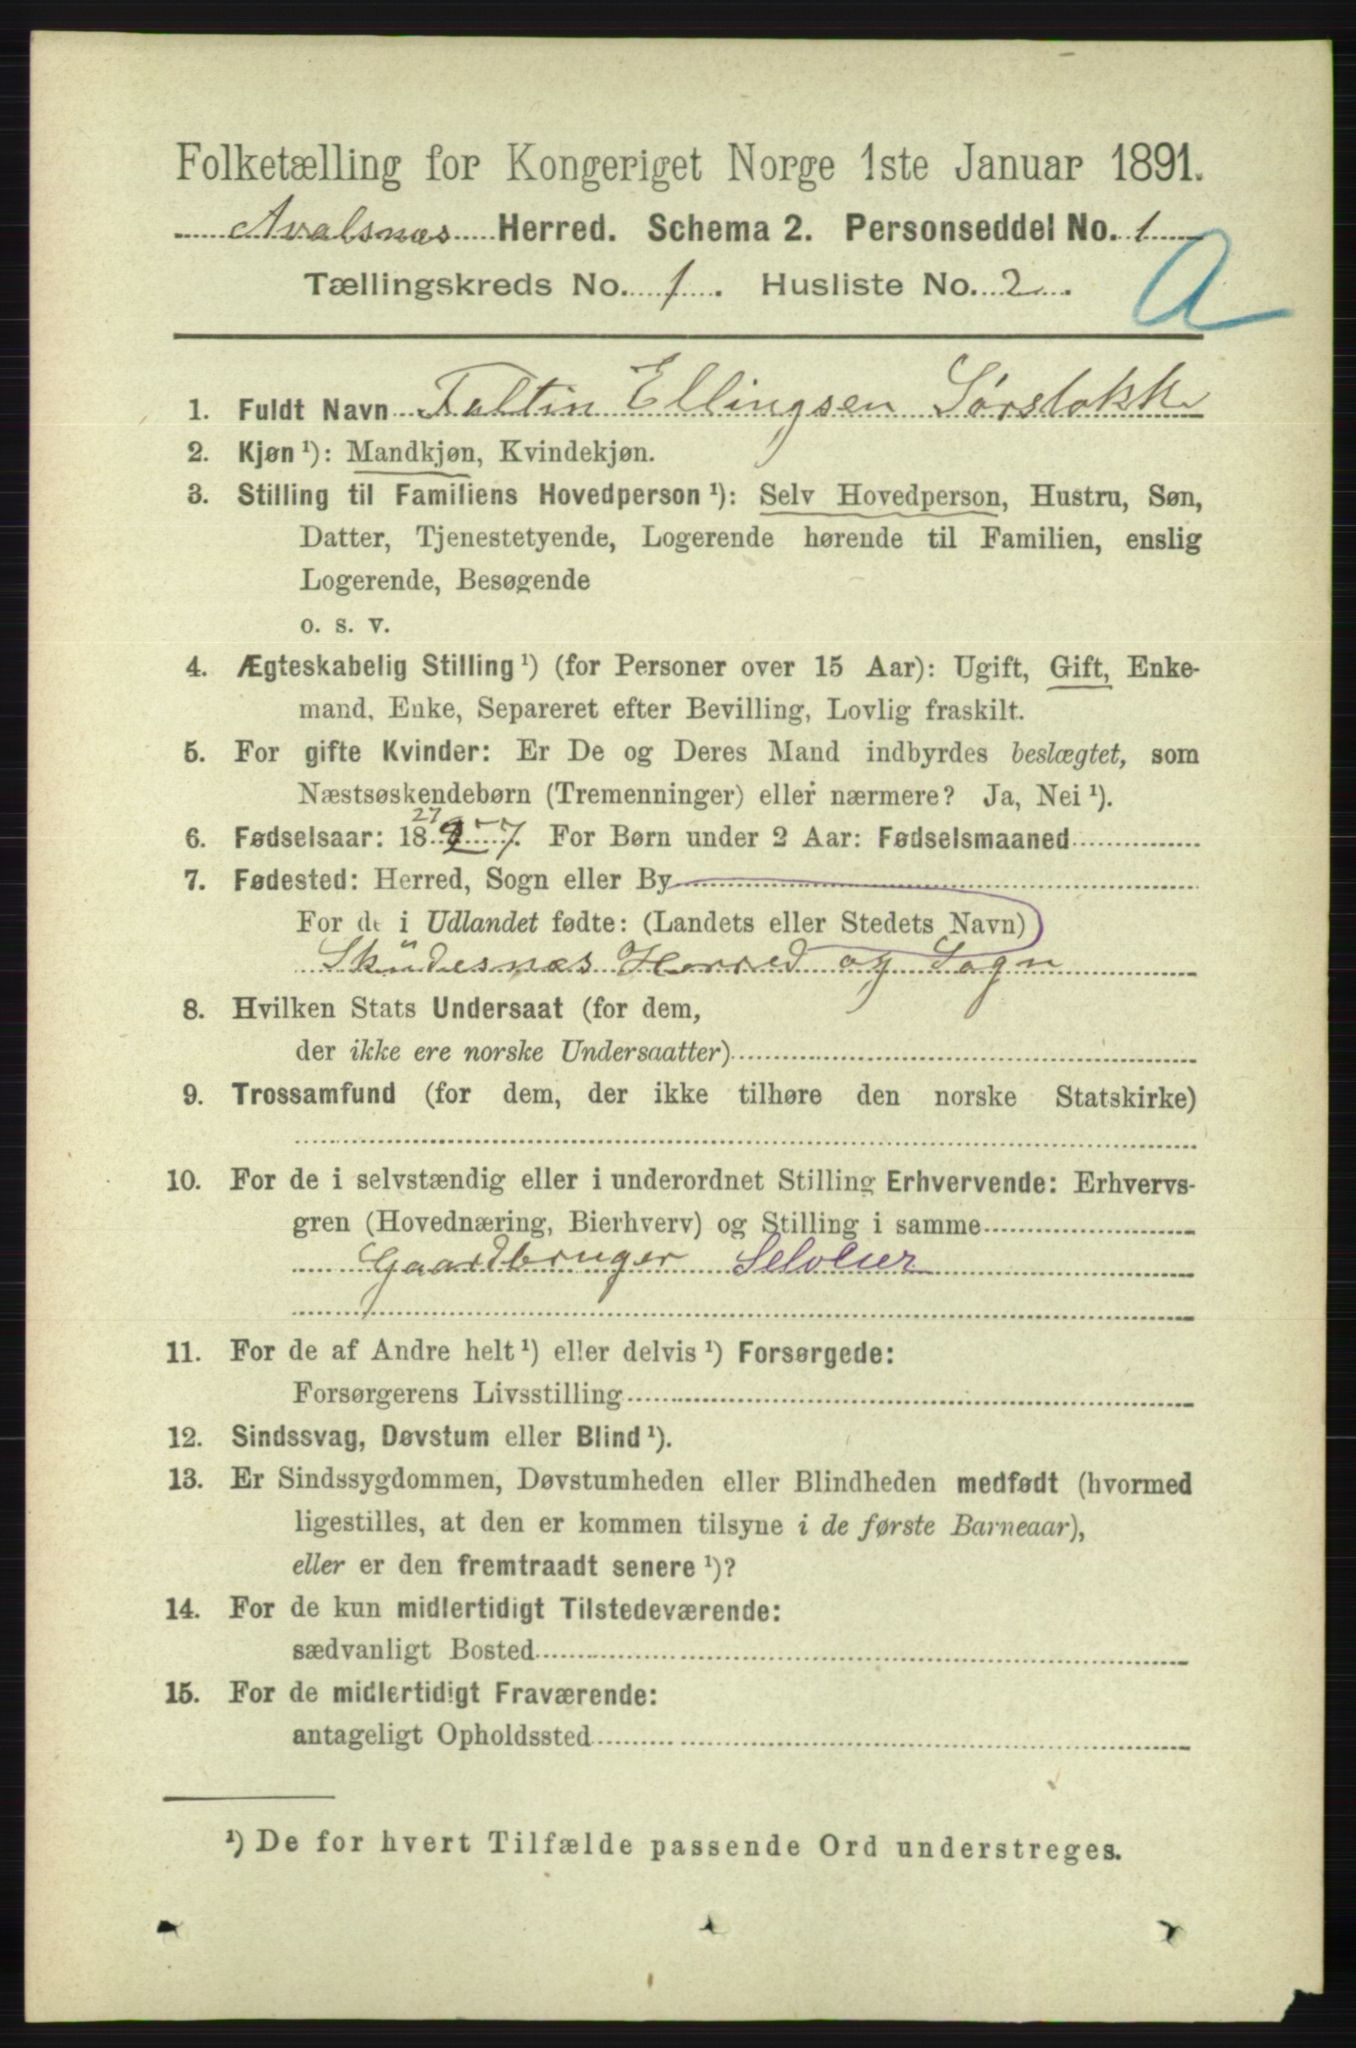 Folketælling for Kongeriget Norge 1ste Januar 1891.
Avalsnæs Herred. Schema 2. Personseddel No. 1
Tællingskreds No. 1. Husliste No. 2.
A
1. Fuldt Navn Faltin Ellingsen Sørstokke
2. Kjøn ¹): Mandkjøn, Kvindekjøn.
3. Stilling til Familiens Hovedperson ¹): Selv Hovedperson, Hustru, Søn,
Datter, Tjenestetyende, Logerende hørende til Familien, enslig
Logerende, Besøgende
o. s. v.
4. Ægteskabelig Stilling ¹) (for Personer over 15 Aar): Ugift, Gift, Enke-
mand, Enke, Separeret efter Bevilling, Lovlig fraskilt.
5. For gifte Kvinder: Er De og Deres Mand indbyrdes beslægtet, som
Næstsøskendebørn (Tremenninger) eller nærmere? Ja, Nei ¹).
27
6. Fødselsaar: 18 7. For Børn under 2 Aar: Fødselsmaaned
7. Fødested: Herred, Sogn eller By
For de i Udlandet fødte: (Landets eller Stedets Navn)
Sküdesnæs Herred og Sogn
8. Hvilken Stats Undersaat (for dem,
der ikke ere norske Undersaatter)
9. Trossamfund (for dem, der ikke tilhøre den norske Statskirke)
10. For de i selvstændig eller i underordnet Stilling Erhvervende: Erhvervs-
gren (Hovednæring, Bierhverv) og Stilling i samme
Gaardbruger Selveier
11. For de af Andre helt ¹) eller delvis ¹) Forsørgede:
Forsørgerens Livsstilling
12. Sindssvag, Døvstum eller Blind ¹).
13. Er Sindssygdommen, Døvstumheden eller Blindheden medfødt (hvormed
ligestilles, at den er kommen tilsyne i de første Barneaar),
eller er den fremtraadt senere ¹)?
14. For de kun midlertidigt Tilstedeværende:
sædvanligt Bosted
15. For de midlertidigt Fraværende:
antageligt Opholdssted
¹) De for hvert Tilfælde passende Ord understreges.